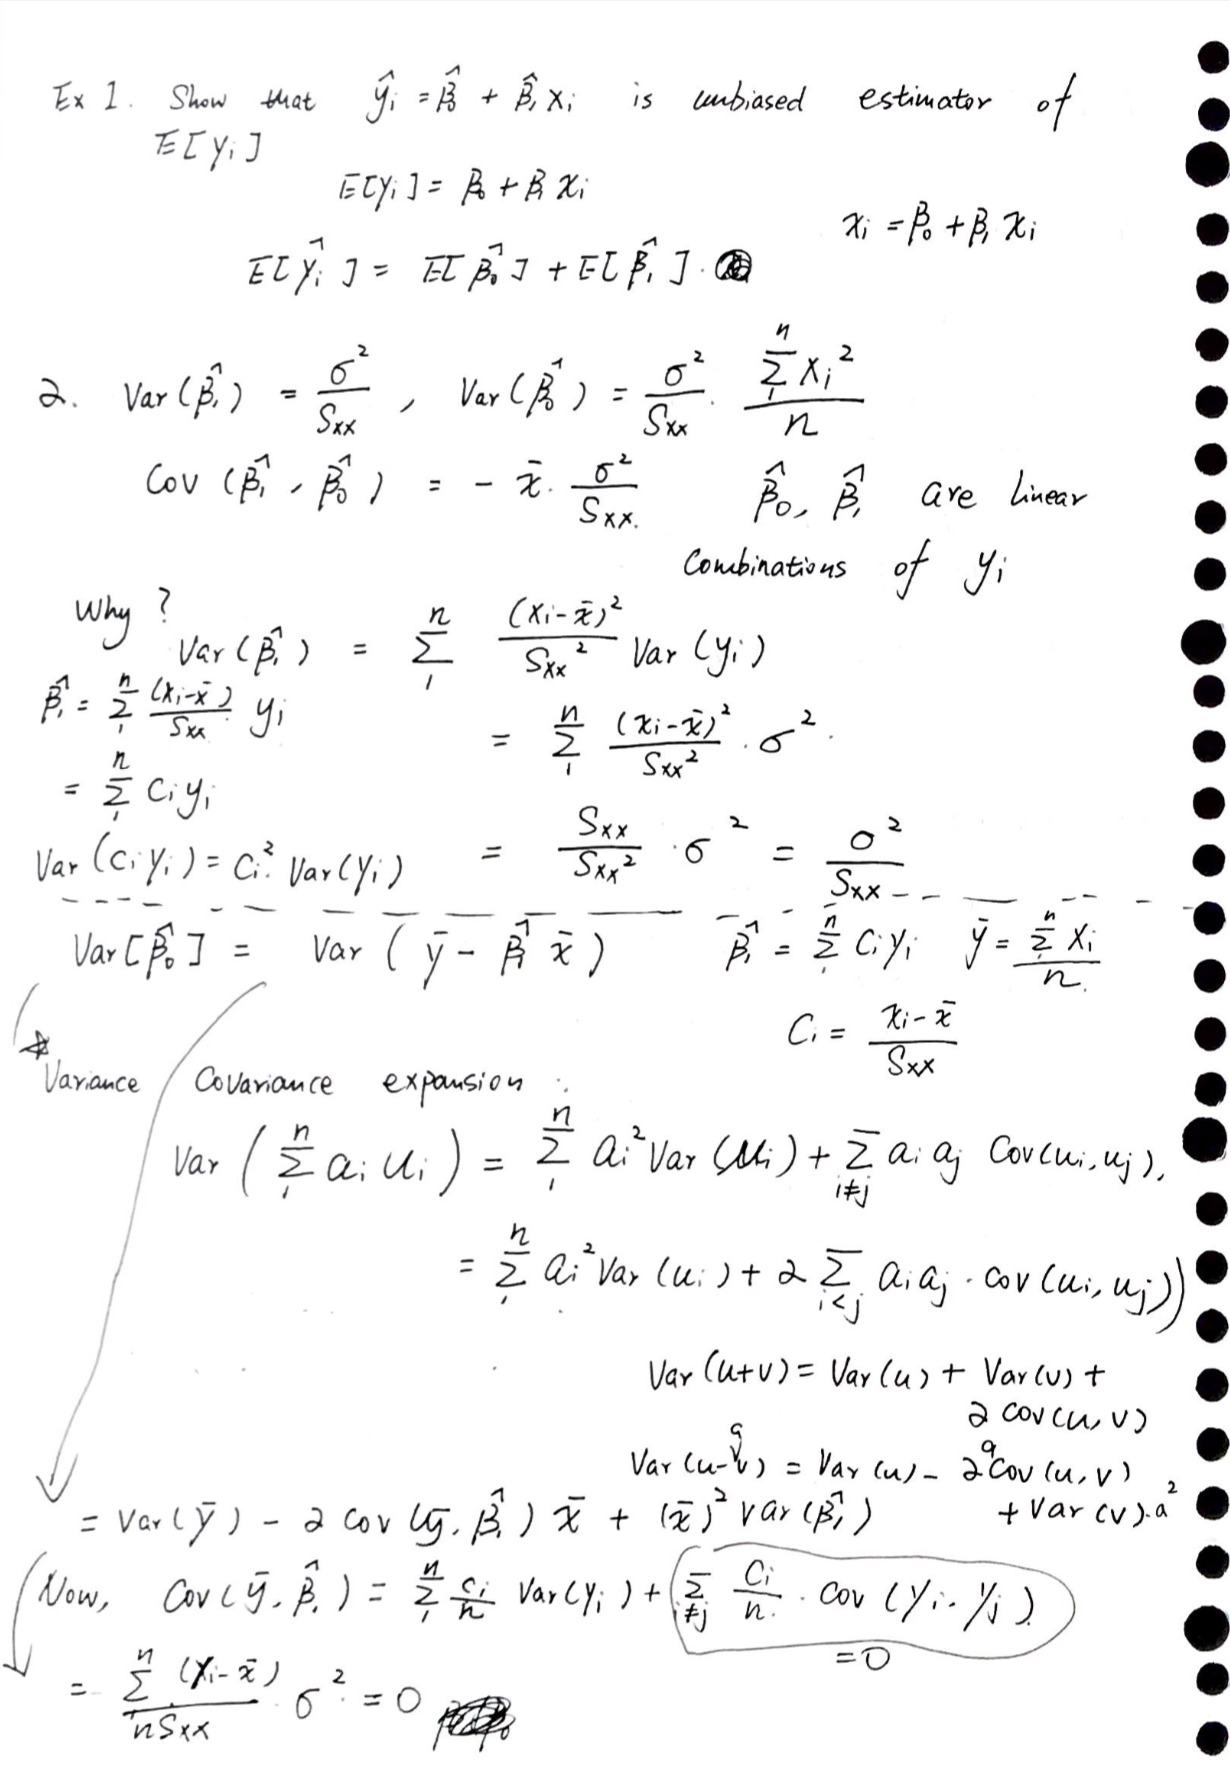 Ex 1. Show that ŷᵢ = β̂₀ + β̂₁ xᵢ is unbiased estimator of
E[yᵢ]
E[yᵢ] = β₀ + β₁ xᵢ
xᵢ = β₀ + β₁ xᵢ
E[ŷᵢ] = E[β̂₀] + E[β̂₁] ·
2. Var(β̂₁) = σ²/Sxx , Var(β̂₀) = σ²/Sxx · Σ₁ⁿ xᵢ²/n
Cov(β̂₁, β̂₀) = - x̄ · σ²/Sxx. β̂₀, β̂₁ are linear
combinations of yᵢ
Why?
Var(β̂₁) = Σ₁ⁿ (xᵢ-x̄)²/Sxx² Var(yᵢ)
β̂₁ = Σ₁ⁿ (xᵢ-x̄)/Sxx yᵢ
= Σ₁ⁿ (xᵢ-x̄)²/Sxx² · σ².
= Σ₁ⁿ cᵢyᵢ
Var(cᵢyᵢ) = cᵢ². Var(yᵢ)
= Sxx/Sxx² · σ² = σ²/Sxx
Var[β̂₀] = Var(ȳ - β̂₁ x̄) β̂₁ = Σ₁ⁿ cᵢyᵢ ȳ = Σ₁ⁿ xᵢ/n.
cᵢ = (xᵢ-x̄)/Sxx
* Variance Covariance expansion :
Var(Σ₁ⁿ aᵢuᵢ) = Σ₁ⁿ aᵢ² Var(uᵢ) + Σᵢ≠ⱼ aᵢaⱼ Cov(uᵢ,uⱼ),
= Σ₁ⁿ aᵢ² Var(uᵢ) + 2 Σᵢ<ⱼ aᵢaⱼ · Cov(uᵢ,uⱼ))
Var(u+v) = Var(u) + Var(v) +
2 cov(u,v)
Var(u-av) = Var(u) - 2a cov(u,v)
+ Var(v)·a²
= Var(ȳ) - 2 cov(ȳ, β̂₁) x̄ + (x̄)² Var(β̂₁)
Now, Cov(ȳ, β̂₁) = Σ₁ⁿ cᵢ/n Var(yᵢ) + Σᵢ≠ⱼ cᵢ/n. · cov(yᵢ, yⱼ)
= 0
= Σ₁ⁿ (xᵢ-x̄)/nSxx · σ² = 0